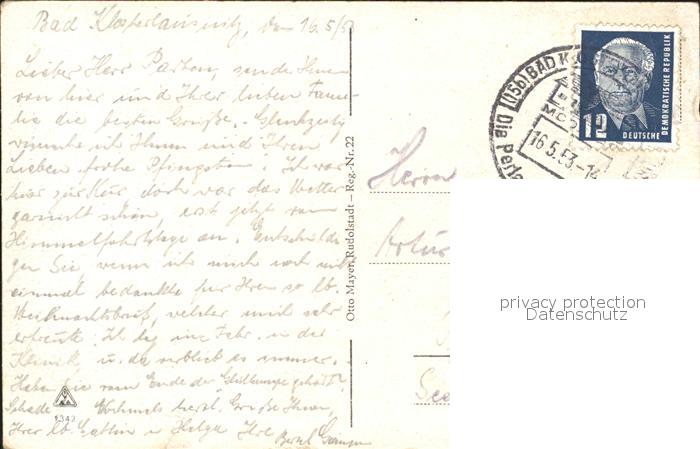 Bad Klosterlausnitz, den 16.5/53
Lieber Herr Parton, sende Ihnen
von hier und Ihrer lieben Fami-
lie die besten Grüße. Gleichzeitig
wünsche ich Ihnen und Ihren
Lieben frohe Pfingsten. Ich war
hier zur Kur, doch war das Wetter
garnicht schön, erst jetzt vom
Himmelfahrtstage an. Entschuldi-
gen Sie, wenn ich mich noch nicht
einmal bedankte für Ihren so lb.
Weihnachtsbrief, welcher mich sehr
erfreute. Ich lag im Febr. in der
Klinik, u. da verblieb es immer.
Haben Sie vom Ende der gehört?
Schade. Nochmals herzl. Grüße Ihnen,
Ihrer lb. Gattin u. Helga Ihre
Otto Mayer, Rudolstadt – Reg.-Nr. 22
Herrn
Artur
See
(15b) BAD K
MOO
16.5.53-14
Die Perle
12
DEUTSCHE
DEMOKRATISCHE REPUBLIK
privacy protection
Datenschutz